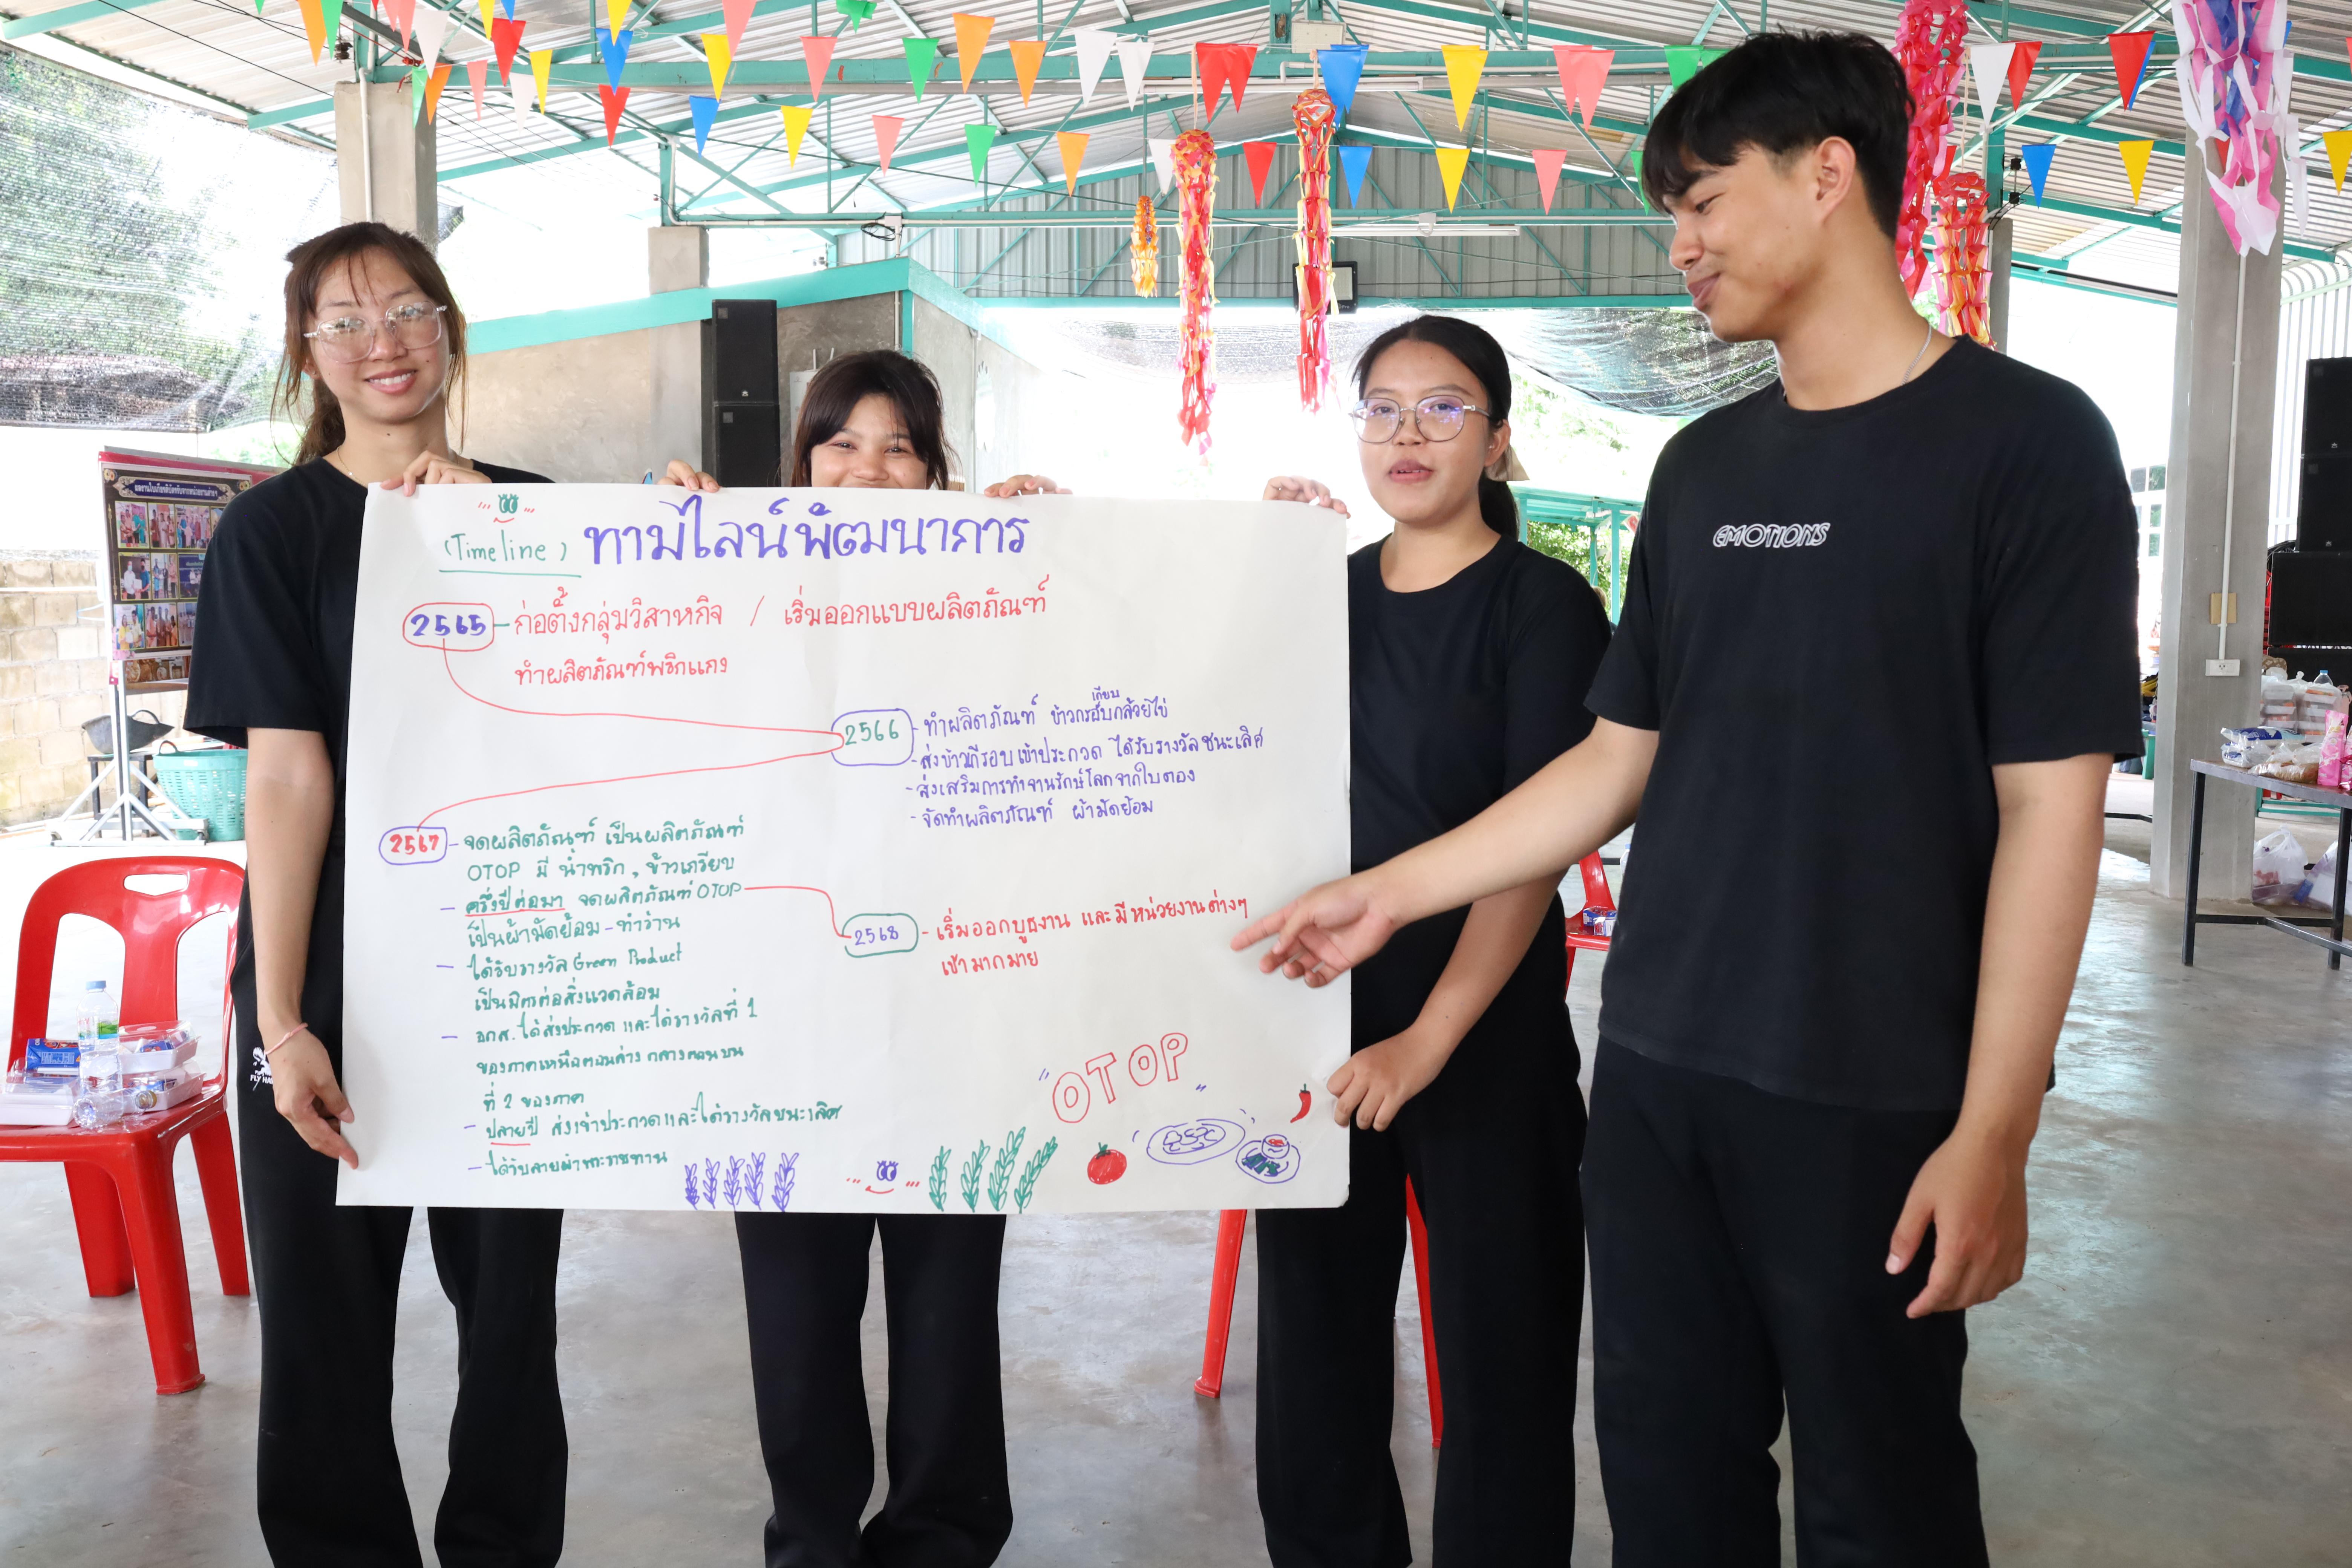 (Timeline) ทามไลน์พัฒนาการ
2565 - ก่อตั้งกลุ่มวิสาหกิจ / เริ่มออกแบบผลิตภัณฑ์
ทำผลิตภัณฑ์พริกแกง
2566 - ทำผลิตภัณฑ์ ข้าวเกียบกล้วยไข่
- ส่งข้าวเกีรอบเข้าประกวด ได้รับรางวัลชนะเลิศ
- ส่งเสริมการทำจานรักษ์โลกจากใบตอง
- จัดทำผลิตภัณฑ์ ผ้ามัดย้อม
2567 - จดผลิตภัณฑ์ เป็นผลิตภัณฑ์
OTOP มี น้ำพริก, ข้าวเกรียบ
- ครึ่งปีต่อมา จดผลิตภัณฑ์ OTOP
เป็นผ้ามัดย้อม - ทำว้าน
- ได้รับรางวัล Green Product
เป็นมิตรต่อสิ่งแวดล้อม
- ธกส. ได้ส่งประกวด และได้รางวัลที่ 1
ของภาคเหนือตอนล่าง กลางตอนบน
ที่ 2 ของภาค
- ปลายปี ส่งเข้าประกวดและได้รางวัลชนะเลิศ
- ได้รับลายผ้าพระราชทาน
2568 - เริ่มออกบูธงาน และมีหน่วยงานต่างๆ
เข้ามากมาย
"OTOP"
EMOTIONS